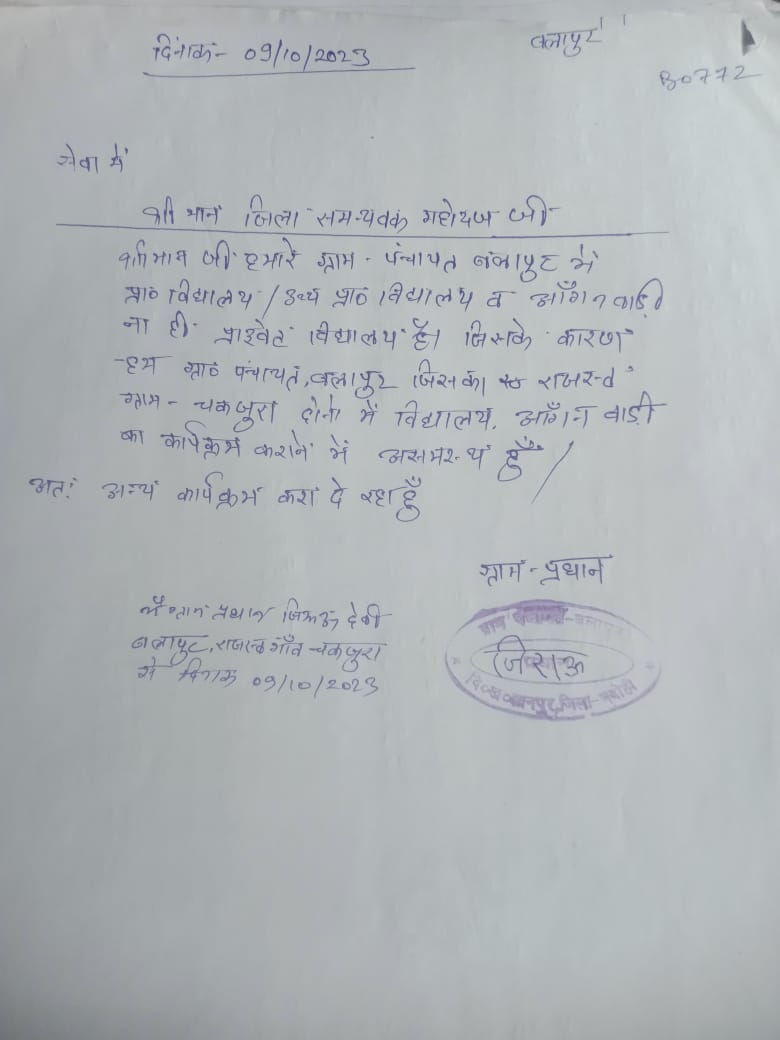 दिनाकं- 09/10/2023
बलापुर
B0772
सेवा में
श्री मान जिला समन्यवक महोदय जी
श्रीमान जी हमारे ग्राम-पंचायत बलापुर में
प्रा० विद्यालय/उच्च प्रा० विद्यालय व आँगनवाड़ी
ना ही प्राइवेट विद्यालय है। जिसके कारण
हम ग्रा० पंचायत, बलापुर जिसका राजस्व
ग्राम-चकजुरा दोनो में विद्यालय, आँगनवाड़ी
का कार्यक्रम कराने में असमर्थ हूँ /
अतः अन्य कार्यक्रम करा दे रहा हूँ
ग्राम-प्रधान
मै ग्राम प्रधान जिराऊ देवी
बलापुर, राजस्व गाँव-चकजुरा
से दिनाक 09/10/2023
जिराऊ
जिला-भदोही